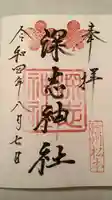 奉拝
深志神社
令和四年八月七日